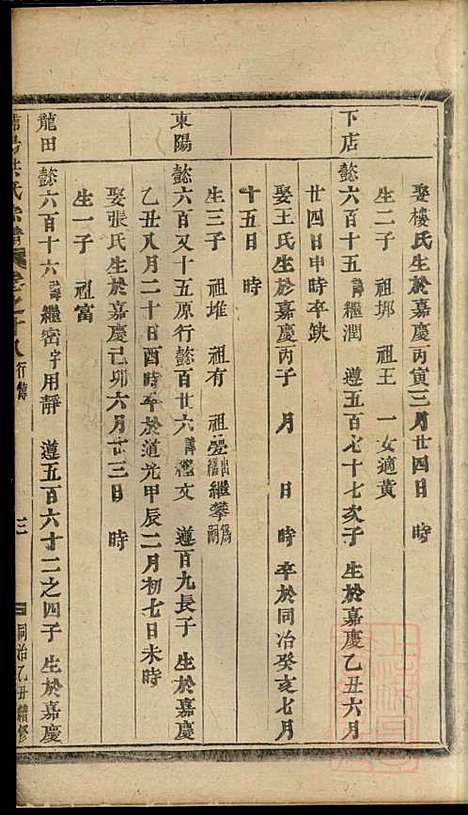 娶樓氏生於嘉慶丙寅三月廿四日 時
生二子 祖墎 祖王 一女適黄
下店
懿六百十五諱繼潤 遵五百七十七次子 生於嘉慶乙丑六月
廿四日申時卒缺
娶王氏生於嘉慶丙子 月 日 時卒於同治癸亥七月
十五日 時
生三子 祖堆 祖有 繼攀
東陽
懿六百又十五原行懿百廿六諱繼文 遵百九長子 生於嘉慶
乙丑八月二十日酉時卒於道光甲辰二月初七日未時
娶張氏生於嘉慶己卯六月廿三日 時
生一子 祖富
龍田
懿六百十六諱繼密字用靜 遵五百六十二之四子 生於嘉慶
洪氏宗譜 卷之十八 行傳 三 同治乙丑續修